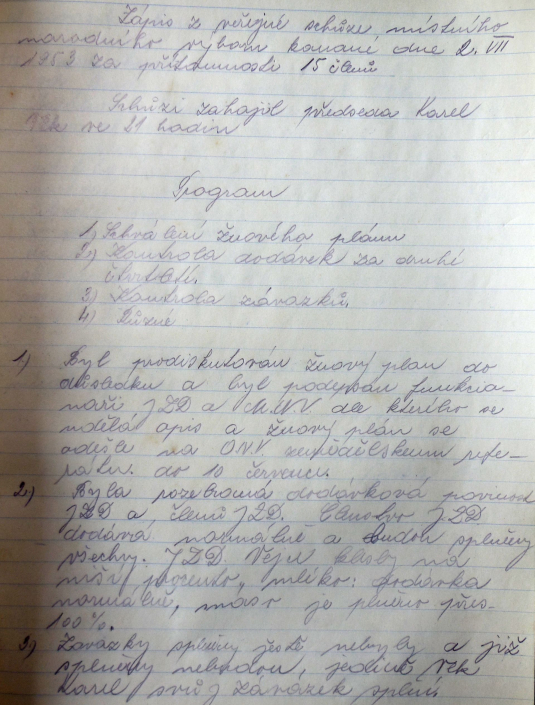 Zápis z veřejné schůze místního
národního výboru konané dne 2. VII
1953 za přítomnosti 15 členů
Schůzi zahájil předseda Karel
Vlk ve 21 hodin
Program
1) Schválení žňového plánu
2) Kontrola dodávek za druhé
čtvrtletí.
3) Kontrola závazků.
4) Různé
1) Byl prodiskutován žňový plán do
důsledku a byl podepsán funkcio-
náři JZD a M.N.V. dle kterého se
udělá opis a žňový plán se
odešle na O.N.V. zemědělskému refe-
rátu. do 10 července.
2) Byla rozebraná dodávková povinost
JZD a členů JZD. Členstvo JZD
dodává normálně a budou splněny
všechny. J.Z.D. Vejce na
nižší procento, mléko: dodávka
normálně, máso je plněno přes-
100%.
3) Závazky splněny ještě nebyly a již
splněny nebudou, jedině Vlk
Karel svůj závazek splnil